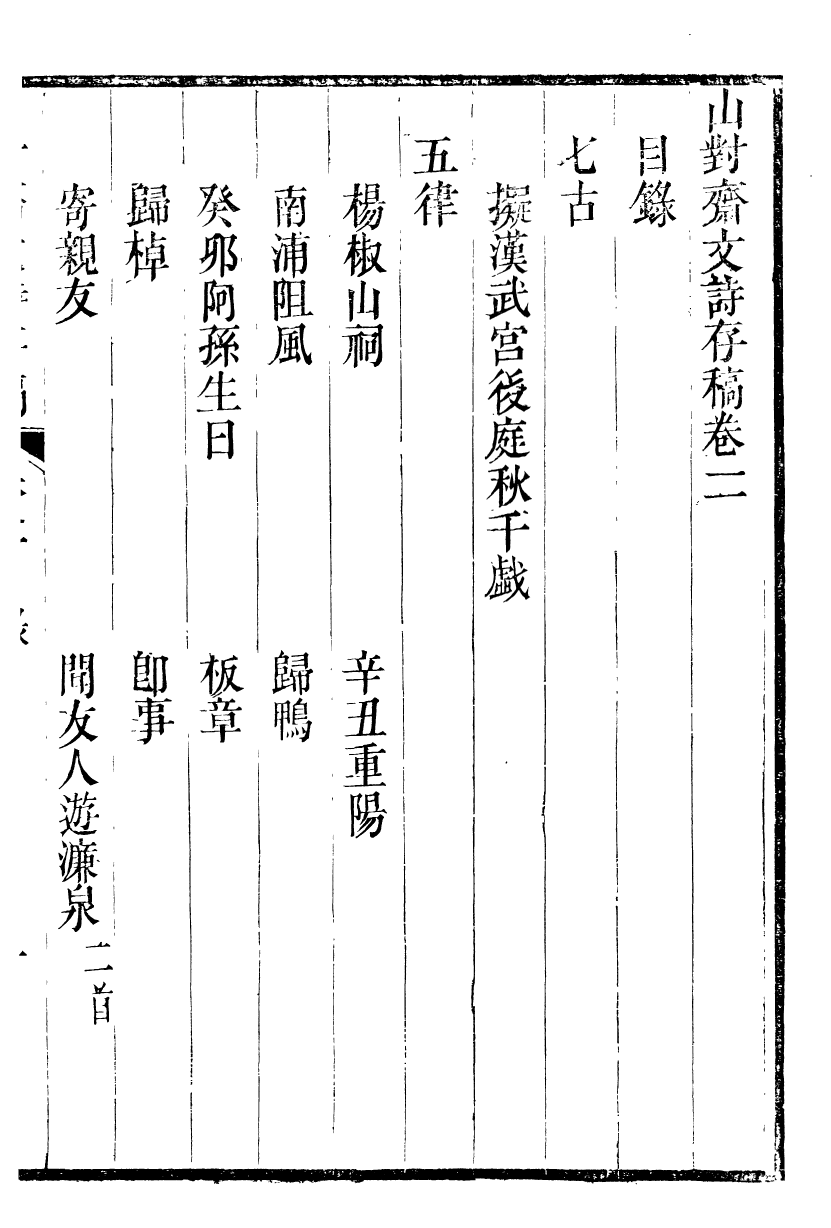 山對齋文詩存稿卷二
目錄
七古
擬漢武宮後庭秋千戯
五律
楊椒山祠　辛丑重陽
南浦阻風　歸鴨
癸卯阿孫生日　板章
歸棹　卽事
寄親友　聞友人遊濂泉二首